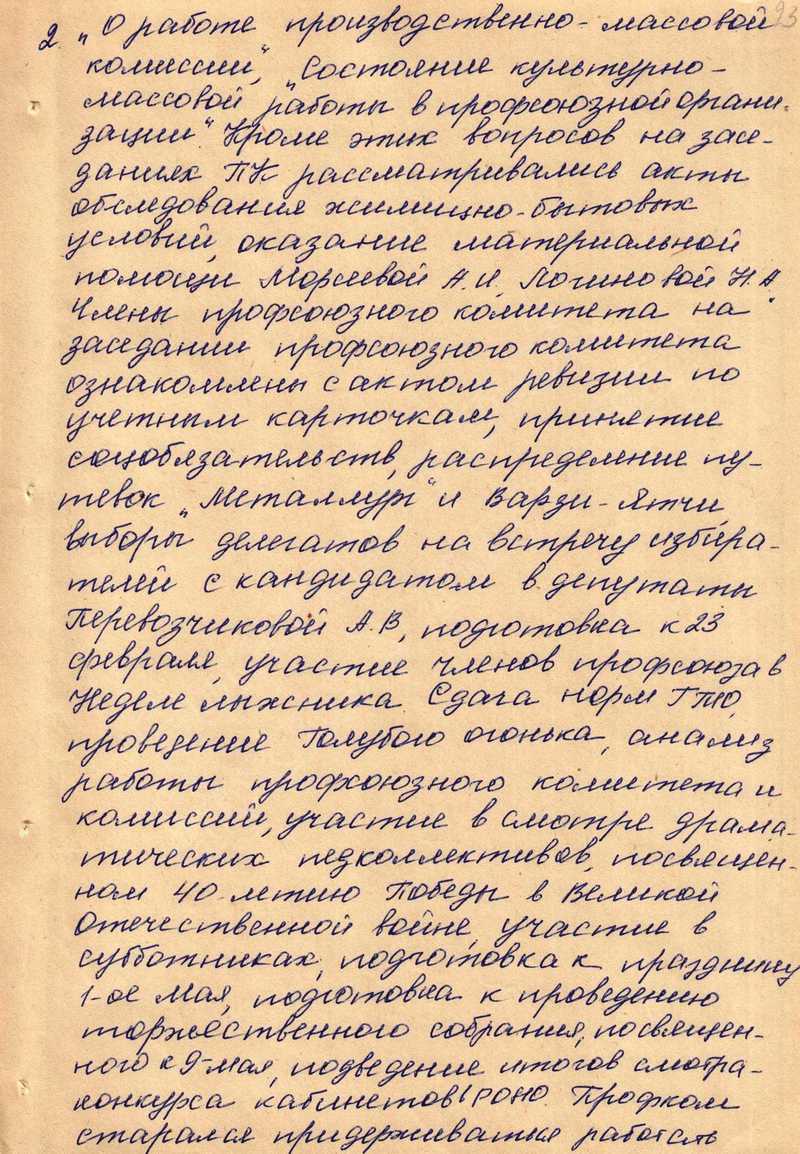 93
2. „О работе производственно-массовой
комиссии", „Состояние культурно-
массовой работы в профсоюзной органи-
зации". Кроме этих вопросов на засе-
даниях ПК рассматривались акты
обследования жилищно-бытовых
условий, оказание материальной
помощи Морсеевой А.И, Логиновой Н.А
Члены профсоюзного комитета на
заседании профсоюзного комитета
ознакомлены с актом ревизии по
учетным карточкам, принятие
соцобязательств, распределение пу-
тевок „Металлург" и Варзи-Ятчи
выборы делегатов на встречу избира-
телей с кандидатом в депутаты
Перевозчиковой А.В, подготовка к 23
февраля, участие членов профсоюза в
Неделе лыжника. Сдача норм ГТО,
проведение Голубого огонька, анализ
работы профсоюзного комитета и
комиссий, участие в смотре драма-
тических педколлективов, посвящен-
ном 40-летию Победы в Великой
Отечественной войне, участие в
субботниках, подготовка к празднику
1-ое Мая, подготовка к проведению
торжественного собрания, посвящен-
ного к 9-мая, подведение итогов смотра-
конкурса кабинетов РОНО. Профком
старался придерживаться работать